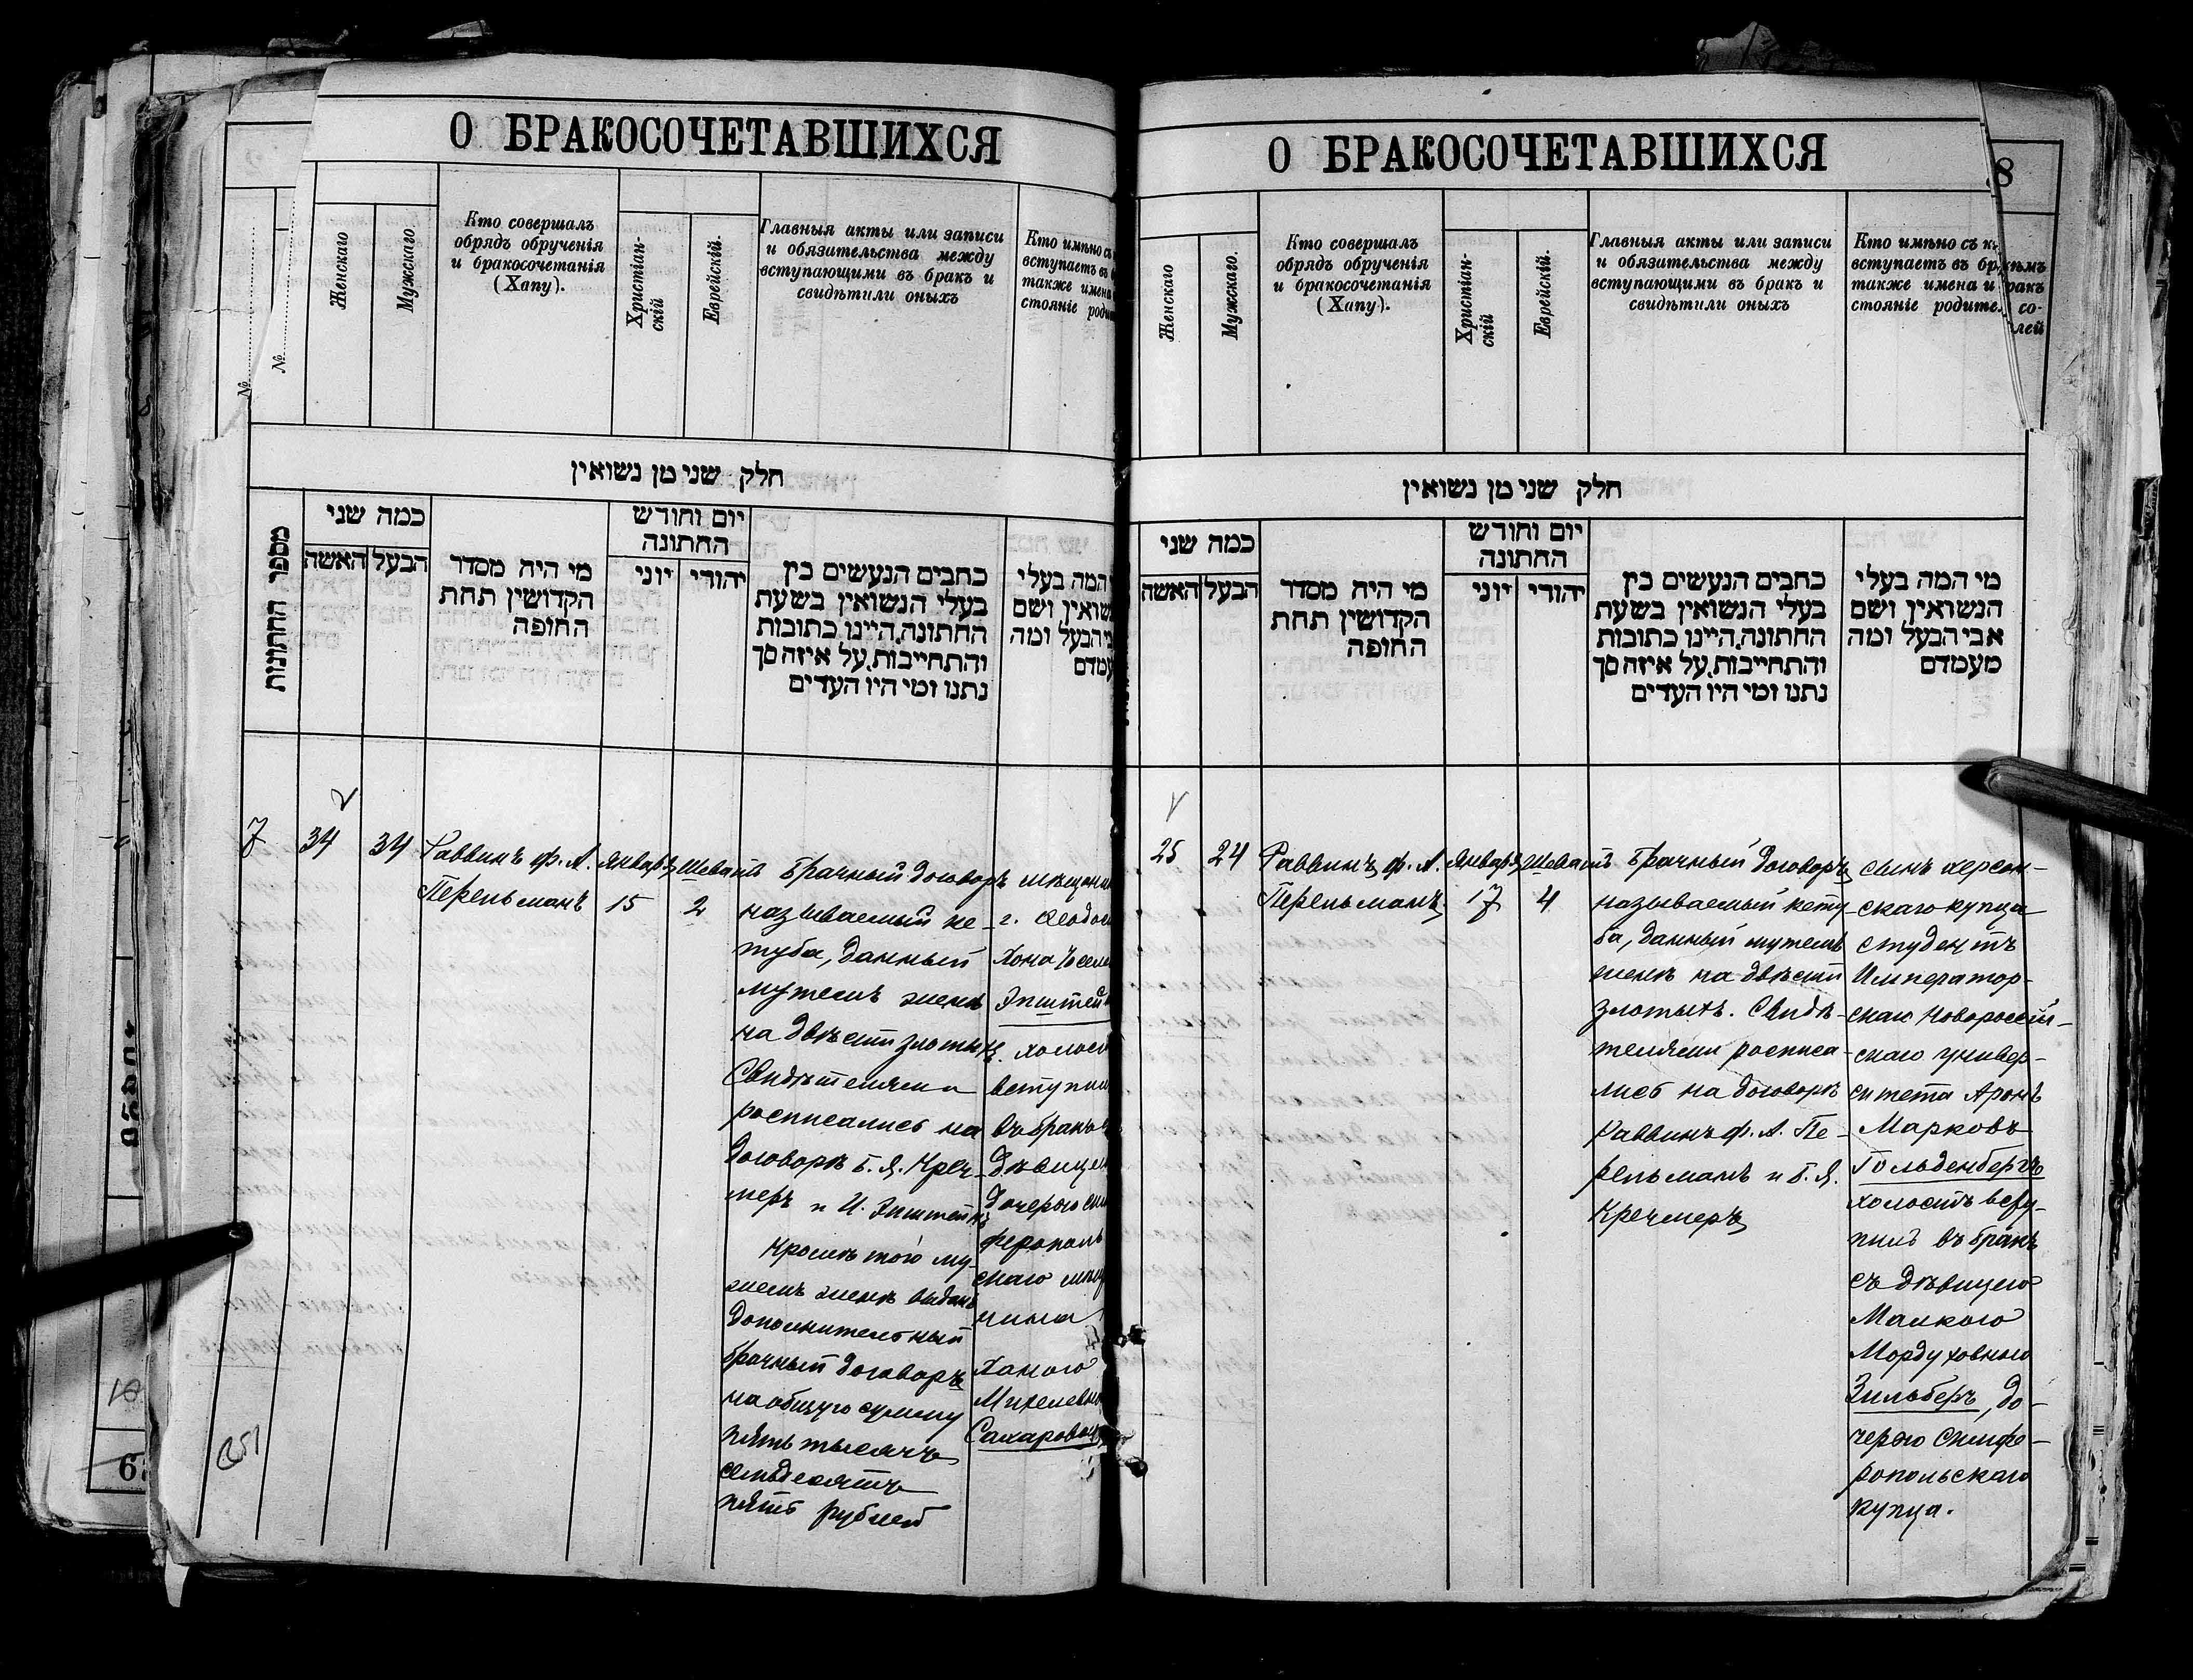 О БРАКОСОЧЕТАВШИХСЯ
№
№
Женскаго
Мужскаго
Кто совершалъ
обрядъ обрученія
и бракосочетанія
(Хапу).
Христіан-
скій
Еврейскій.
Главныя акты или записи
и обязательства между
вступающими въ бракъ и
свидѣтили оныхъ
Кто имѣно съ
вступаетъ въ
также имена
стояніе роди
חלק שני מן נשואין
מספר החתונות
כמה שני
האשה
הבעל
מי היה מסדר
הקדושין תחת
החופה
יום וחודש
החתונה
יוני
יהודי
כתבים הנעשים בין
בעלי הנשואין בשעת
החתונה, היינו כתובות
והתחייבות, על איזה סך
נתנו ומי היו העדים
המה בעלי
שואין ושם
בי הבעל ומה
עמדם
7
34
34
Раввинъ Ф. А.
Перельманъ
Январь
15
Шеватъ
2
Брачный договоръ
называемый ке-
туба, данный
мужемъ женѣ
на двѣсти злотыхъ.
Свидѣтелями
росписались на
договорѣ Б. Я. Креч-
меръ и И. Эпштейнъ
Кромѣ того му-
жемъ женѣ выданъ
дополнительный
брачный договоръ
на общую сумму
пять тысячъ
семьдесятъ
пять рублей
мѣщани
г. Ѳеодос
Хона Іосел
Эпштейн
холост
вступил
въ бракъ
дѣвицею
дочерью сим
ферополь
скаго мѣщ
нина
Ханою
Михелевно
Сахаровой
651
О БРАКОСОЧЕТАВШИХСЯ
8
Женскаго
Мужскаго.
Кто совершалъ
обрядъ обрученія
и бракосочетанія
(Хапу).
Христіан-
скій
Еврейскій.
Главныя акты или записи
и обязательства между
вступающими въ бракъ и
свидѣтили оныхъ
Кто имѣно съ кѣмъ
вступаетъ въ бракъ
также имена и со-
стояніе родителей
חלק שני מן נשואין
כמה שני
האשה
הבעל
מי היה מסדר
הקדושין תחת
החופה
יום וחודש
החתונה
יוני
יהודי
כתבים הנעשים בין
בעלי הנשואין בשעת
החתונה, היינו כתובות
והתחייבות, על איזה סך
נתנו ומי היו העדים
מי המה בעלי
הנשואין ושם
אבי הבעל ומה
מעמדם
25
24
Раввинъ Ф. А.
Перельманъ
Январь
17
Шеватъ
4
Брачный договоръ
называемый кету-
ба, данный мужемъ
женѣ на двѣсти
злотыхъ. Свидѣ-
телями росписа-
лись на договорѣ
Раввинъ Ф. А. Пе-
рельманъ и Б. Я.
Кречмеръ
Сынъ херсон-
скаго купца
студентъ
Император-
скаго Новороссій-
скаго универ-
ситета Аронъ
Марковъ
Гольденбергъ
холостъ всту-
пилъ въ бракъ
съ дѣвицею
Малкою
Мордуховною
Зильберъ, до-
черью симфе-
ропольскаго
купца.